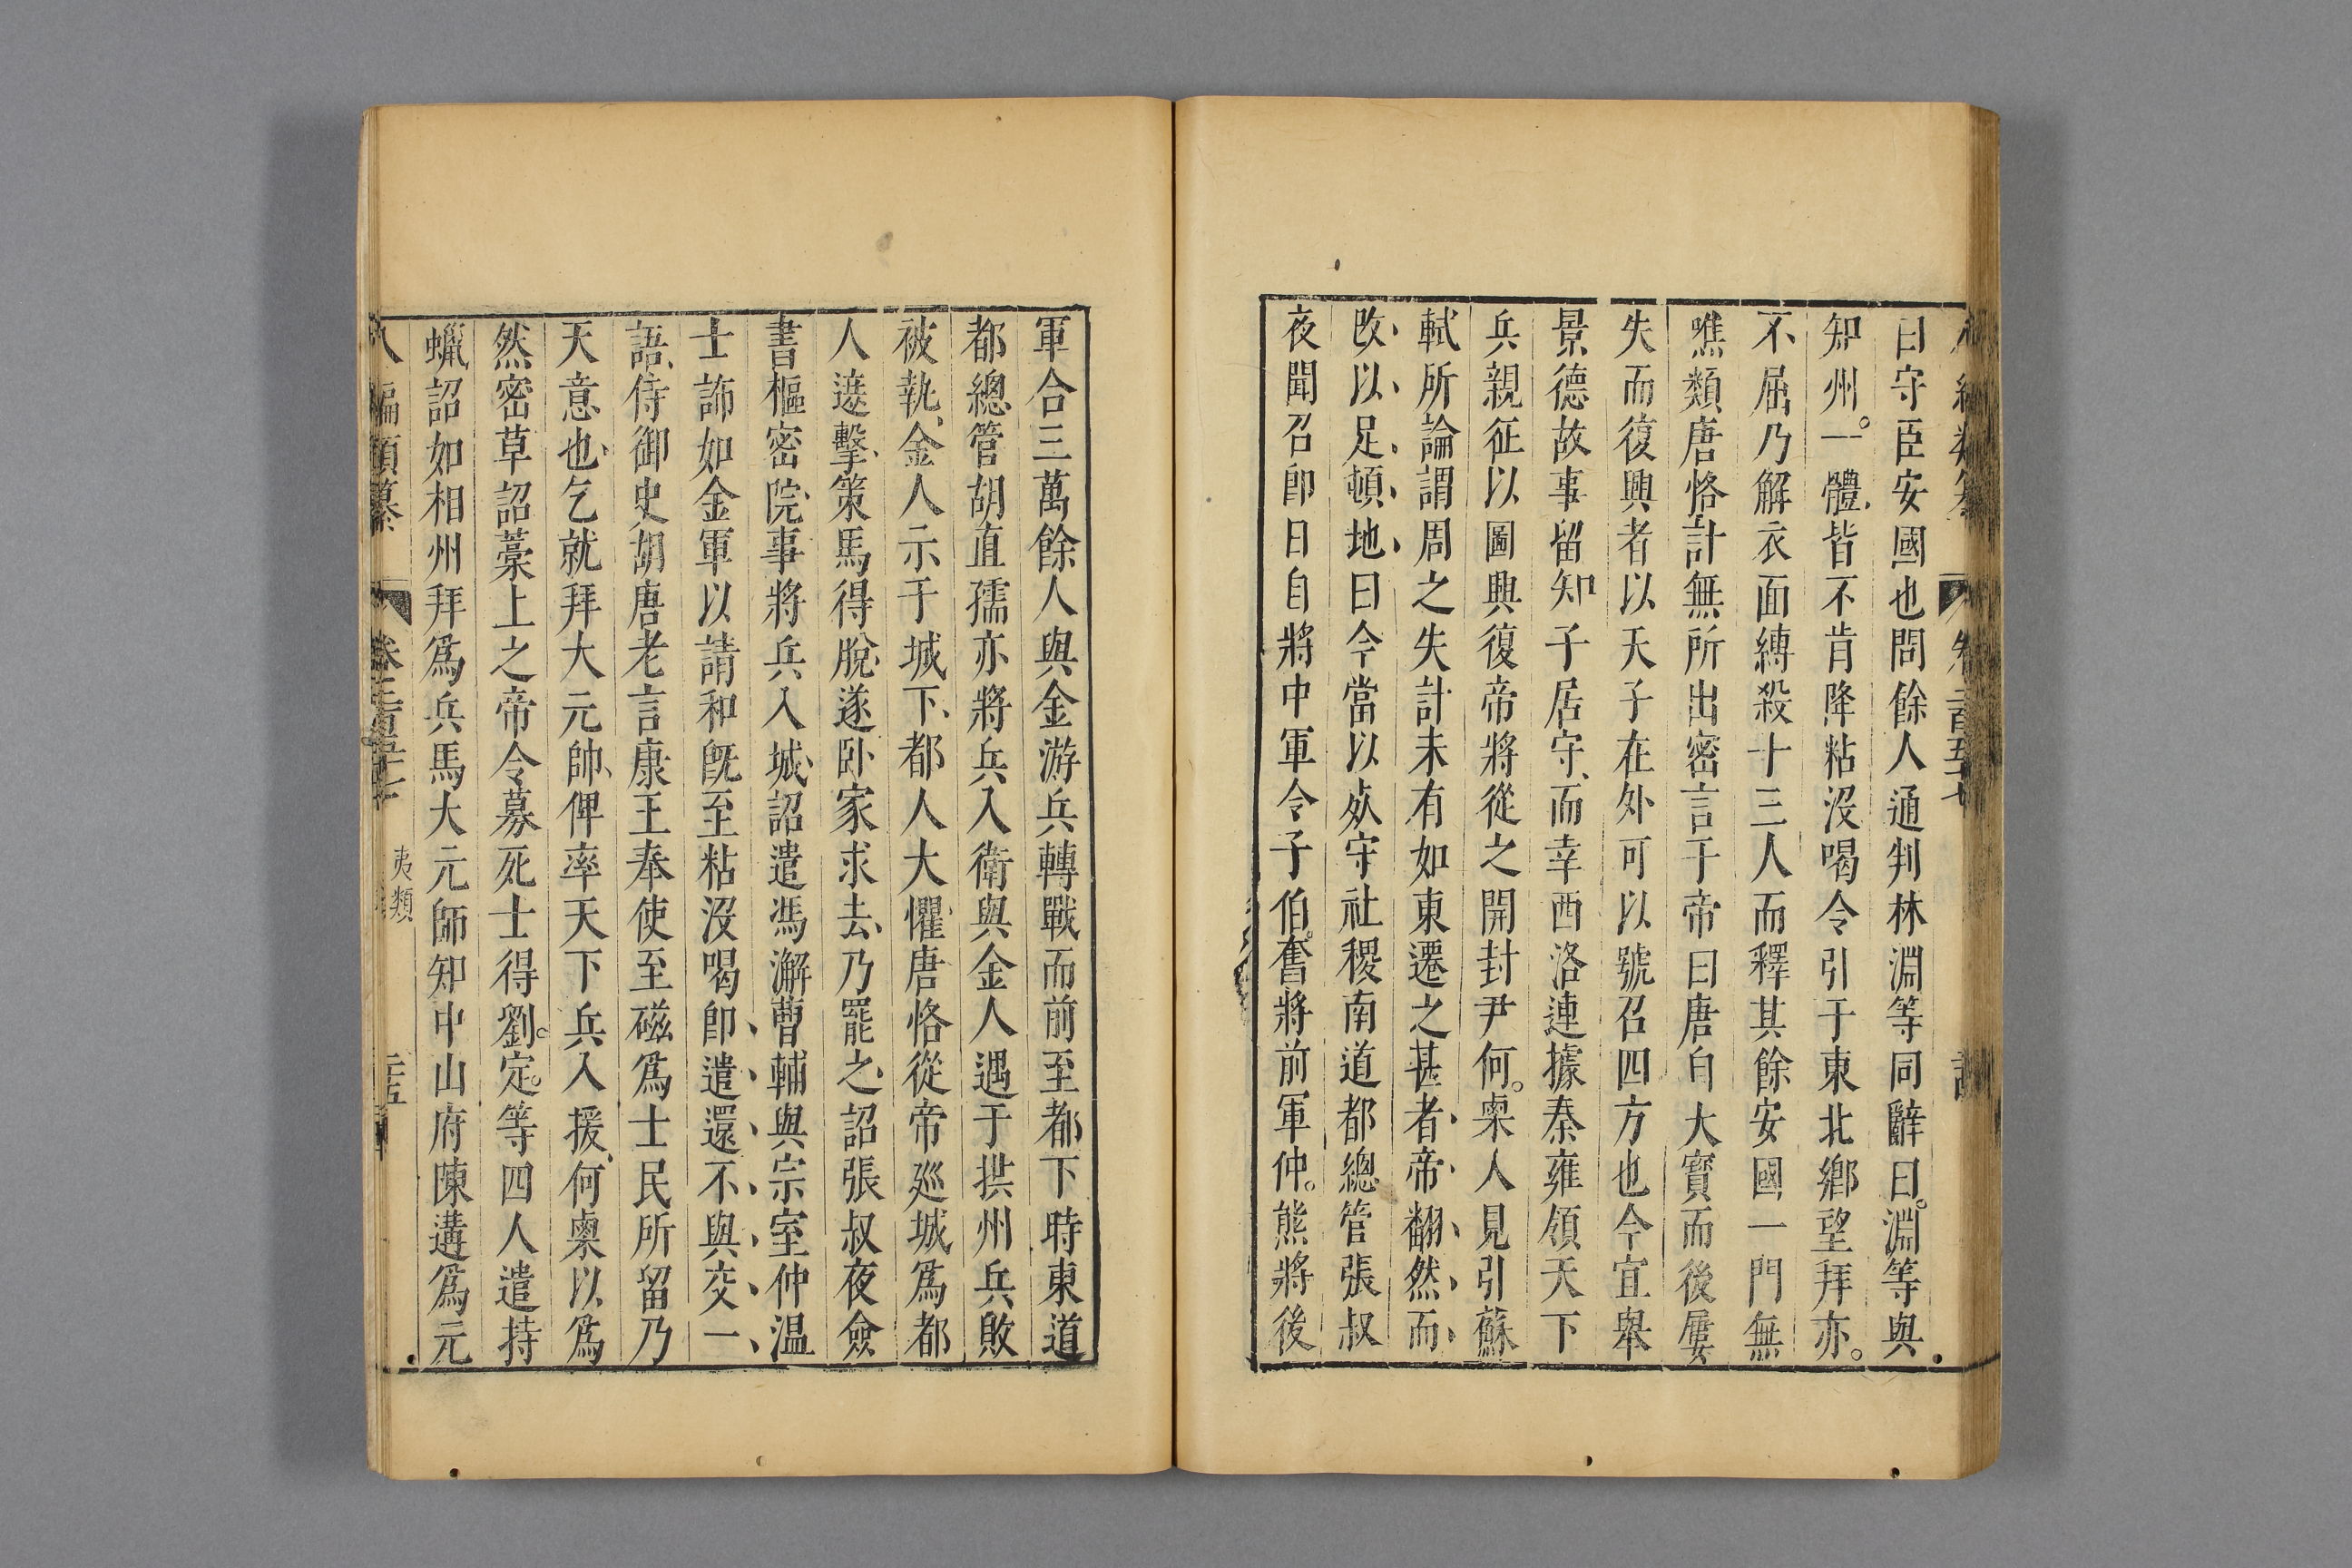 曰守臣安國也問餘人通判林淵等同辭曰淵等與
知州一體皆不肯降粘沒喝令引于東北鄉望拜亦
不屈乃解衣面縛殺十三人而釋其餘安國一門無
噍類唐恪計無所出密言于帝曰唐自大寶而後屢
失而復興者以天子在外可以號召四方也今宜舉
景德故事留知子居守而幸西洛連據秦雍領天下
兵親征以圖興復帝將從之開封尹何㮚人見引蘇
軾所論謂周之失計未有如東遷之甚者帝翻然而
改以足頓地曰今當以死守社稷南道都總管張叔
夜聞召即日自將中軍令子伯奮將前軍仲熊將後
軍合三萬餘人與金游兵轉戰而前至都下時東道
都總管胡直孺亦將兵入衛與金人遇于拱州兵敗
被執金人示于城下都人大懼唐恪從帝廵城爲都
人遮擊策馬得脫遂卧家求去乃罷之詔張叔夜僉
書樞密院事將兵入城詔遣馮澥曹輔與宗室仲温
士諦如金軍以請和旣至粘沒喝即遣還不與交一
語侍御史胡唐老言康王奉使至磁爲士民所留乃
天意也乞就拜大元帥俾率天下兵入援何㮚以爲
然密草詔藁上之帝令募死士得劉定等四人遣持
蠟詔如相州拜爲兵馬大元師知中山府陳遘爲元
八編類纂
卷二百五十七
夷類
二十五